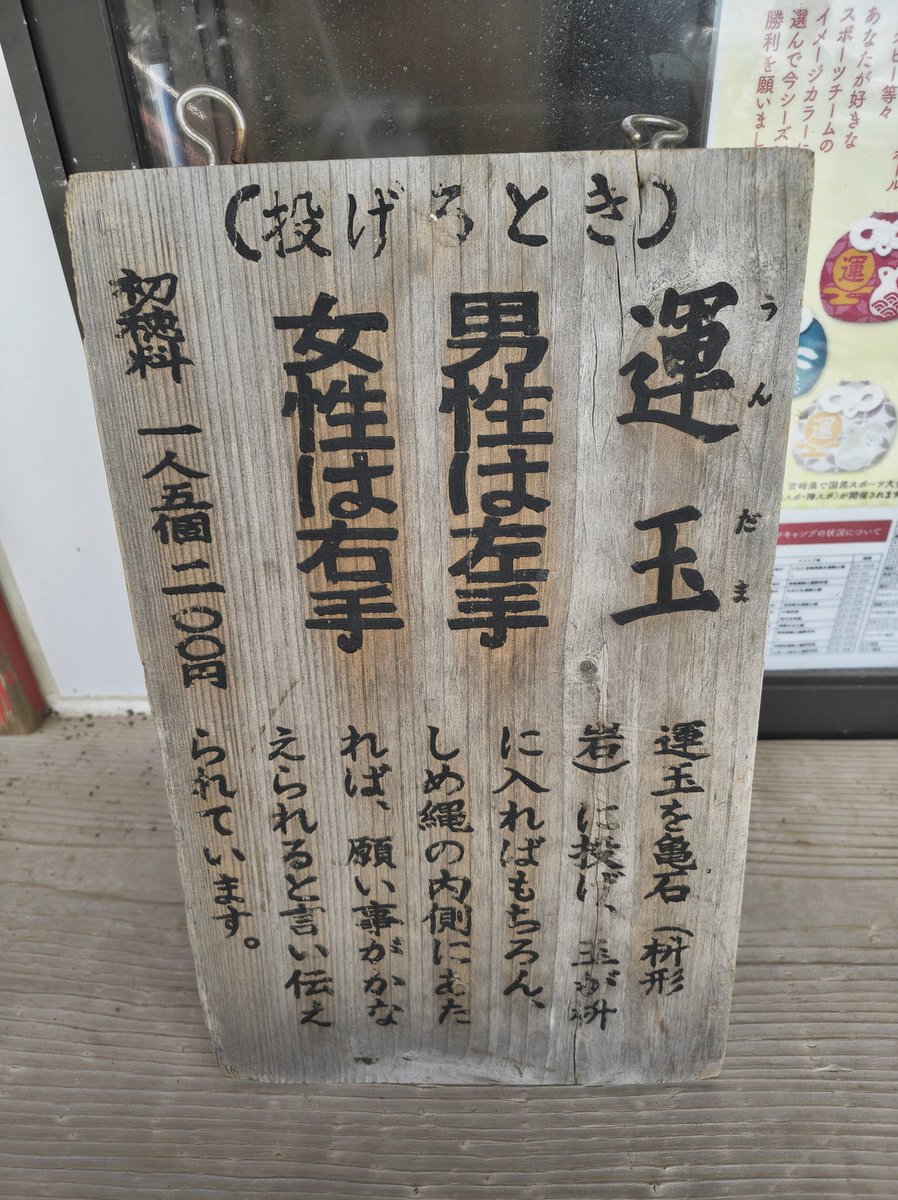 (投げるとき)
運玉
うんだま
男性は左手
女性は右手
初穂料 一人五個 二〇〇円
運玉を亀石(枡形
岩)に投げ、玉が枡
に入ればもちろん、
しめ縄の内側にあた
れば、願い事がかな
えられると言い伝え
られています。
あなたが好きな
スポーツチームの
イメージカラーに
選んで今シーズ
勝利を願いまし
運
運
宮崎県で国民スポーツ大
キャンプの状況について